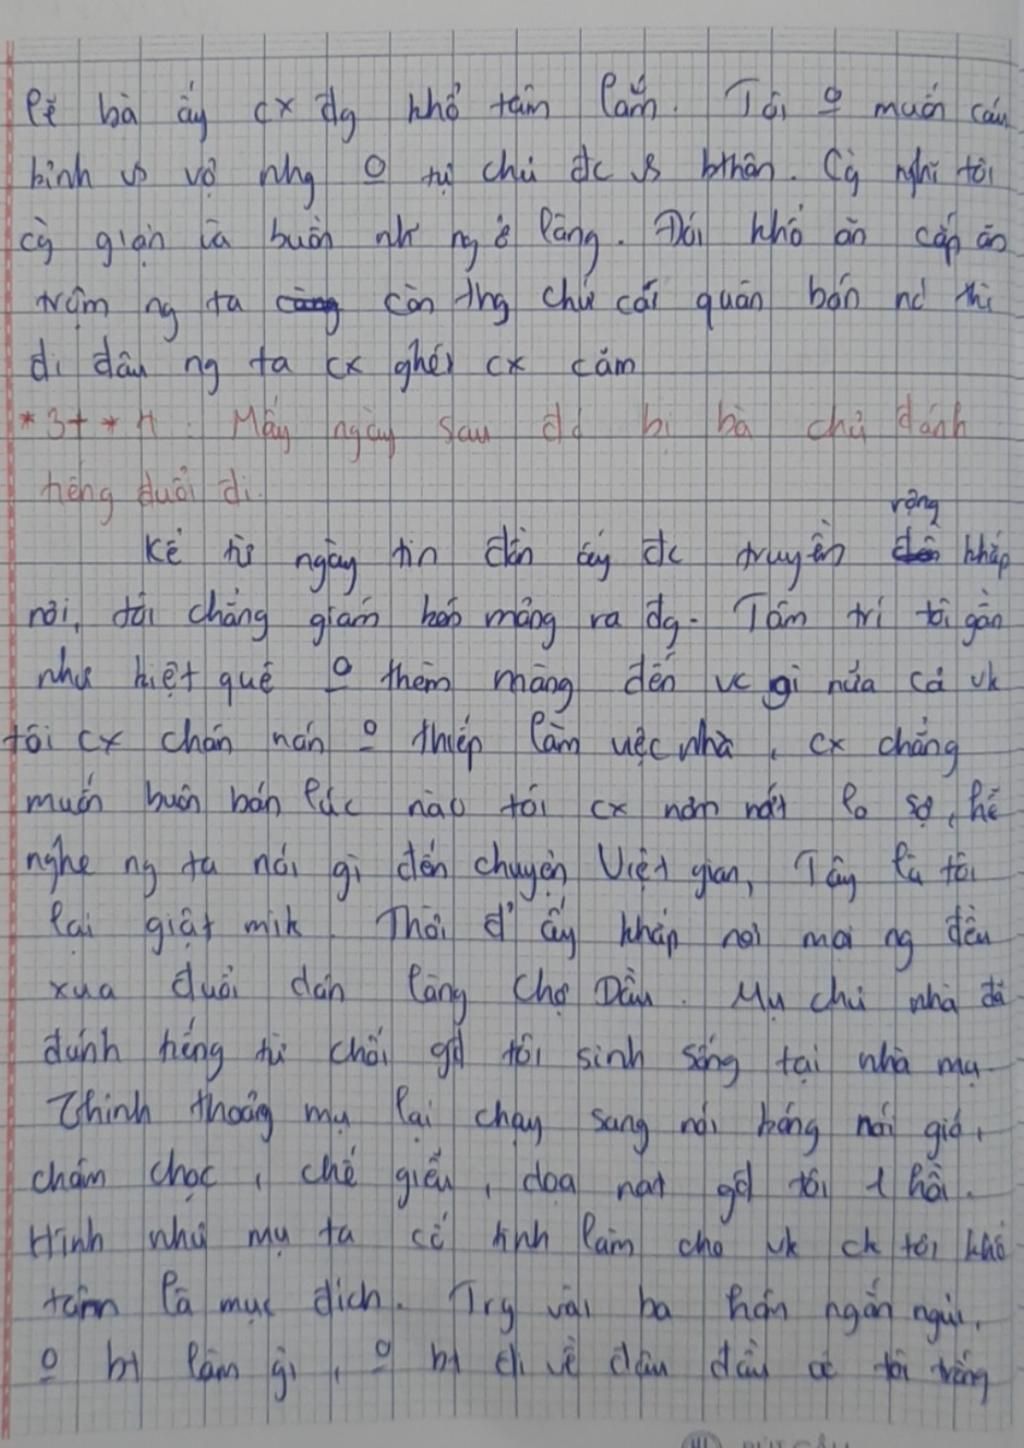 lẽ bà ấy cx đg khổ tâm lắm. Tôi o muốn cáu
bình vs vợ nhg o tự chủ đc vs bthân. Cg nghĩ tôi
cg giận là buồn nh ng ở làng. Đói khổ ăn cắp ăn
trộm ng ta còn thg chứ cái quân bán nc thì
đi đâu ng ta cx ghét cx cấm
* 3+ * H : Mấy ngày sau đó bị bà chủ đánh
tiếng đuổi đi.
Kể từ ngày tin đồn ấy đc truyền rộng khắp
nơi, tôi chẳng giám ra đg. Tâm trí tôi gần
như kiệt quệ o thèm màng đến vc gì nữa cả vk
tôi cx chán nản o thiếp làm việc nhà, cx chẳng
muốn buôn bán lúc nào tôi cx nơm nớt lo sợ, hễ
nghe ng ta nói gì đến chuyện Việt gian, Tây là tôi
lại giật mik. Thời đ' ấy khắp nơi mọi ng đều
xua đuổi dân làng Chợ Dầu. Mụ chủ nhà đã
đánh tiếng từ chối gđ tôi sinh sống tại nhà mụ.
Thỉnh thoảg mụ lại chạy sang nói bóng nói gió,
châm chọc, chế giễu, doạ nạt gđ tôi 1 hồi.
Hình như mụ ta cố tình làm cho vk ck tôi khổ
tâm là mục đích. Trg vài ba hôm ngắn ngủi,
o bt làm gì, o bt đi về đâu đầu óc tôi trống